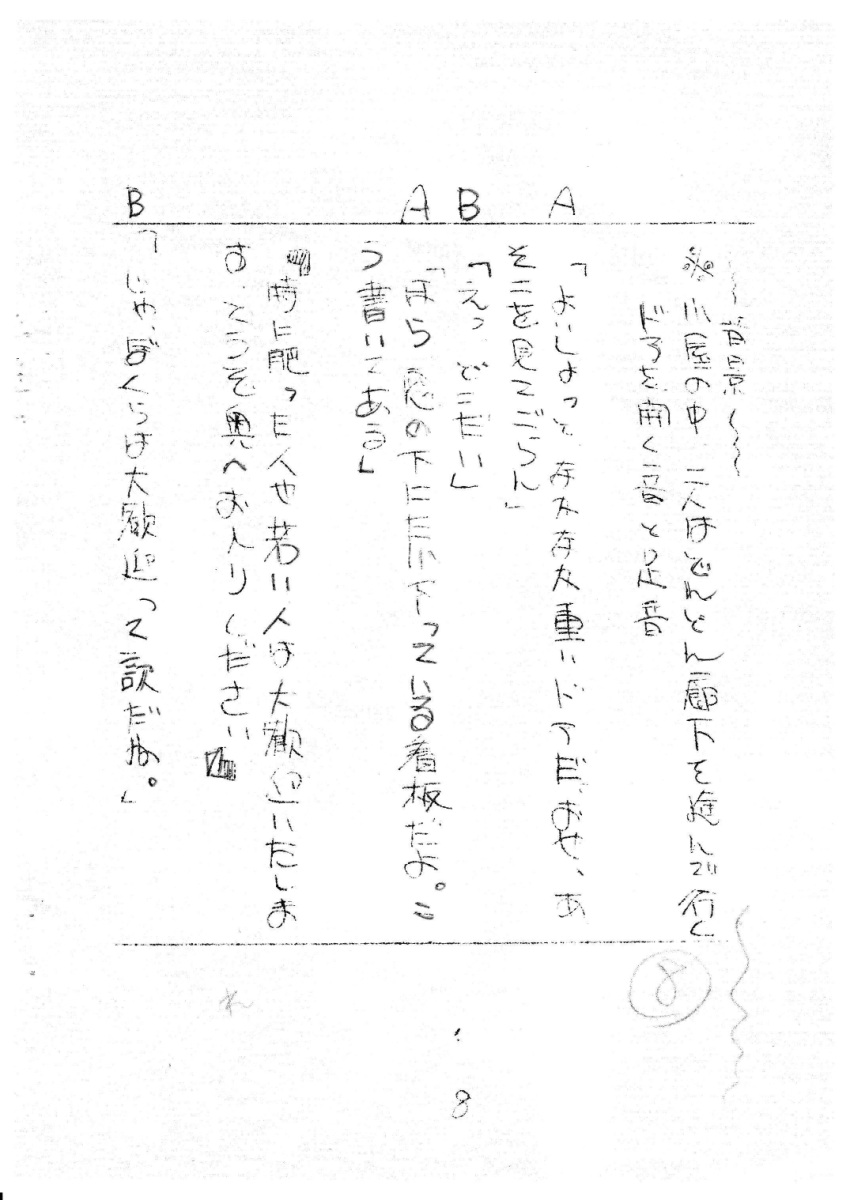 〜音景〜
※小屋の中 二人はどんどん廊下を進んで行く
ドアを開く音と足音
A「よいしょっと、なかなか重いドアだ、おや、あ
そこを見てごらん」
B「えっ、どこだい」
A「ほら 窓の下にたれ下っている看板だよ。こ
う書いてある」
『時に肥った人や若い人は大歓迎いたしま
す、どうぞ奥へお入りください』
B「じゃ、ぼくらは大歓迎って訳だね。」
⑧
れ
8